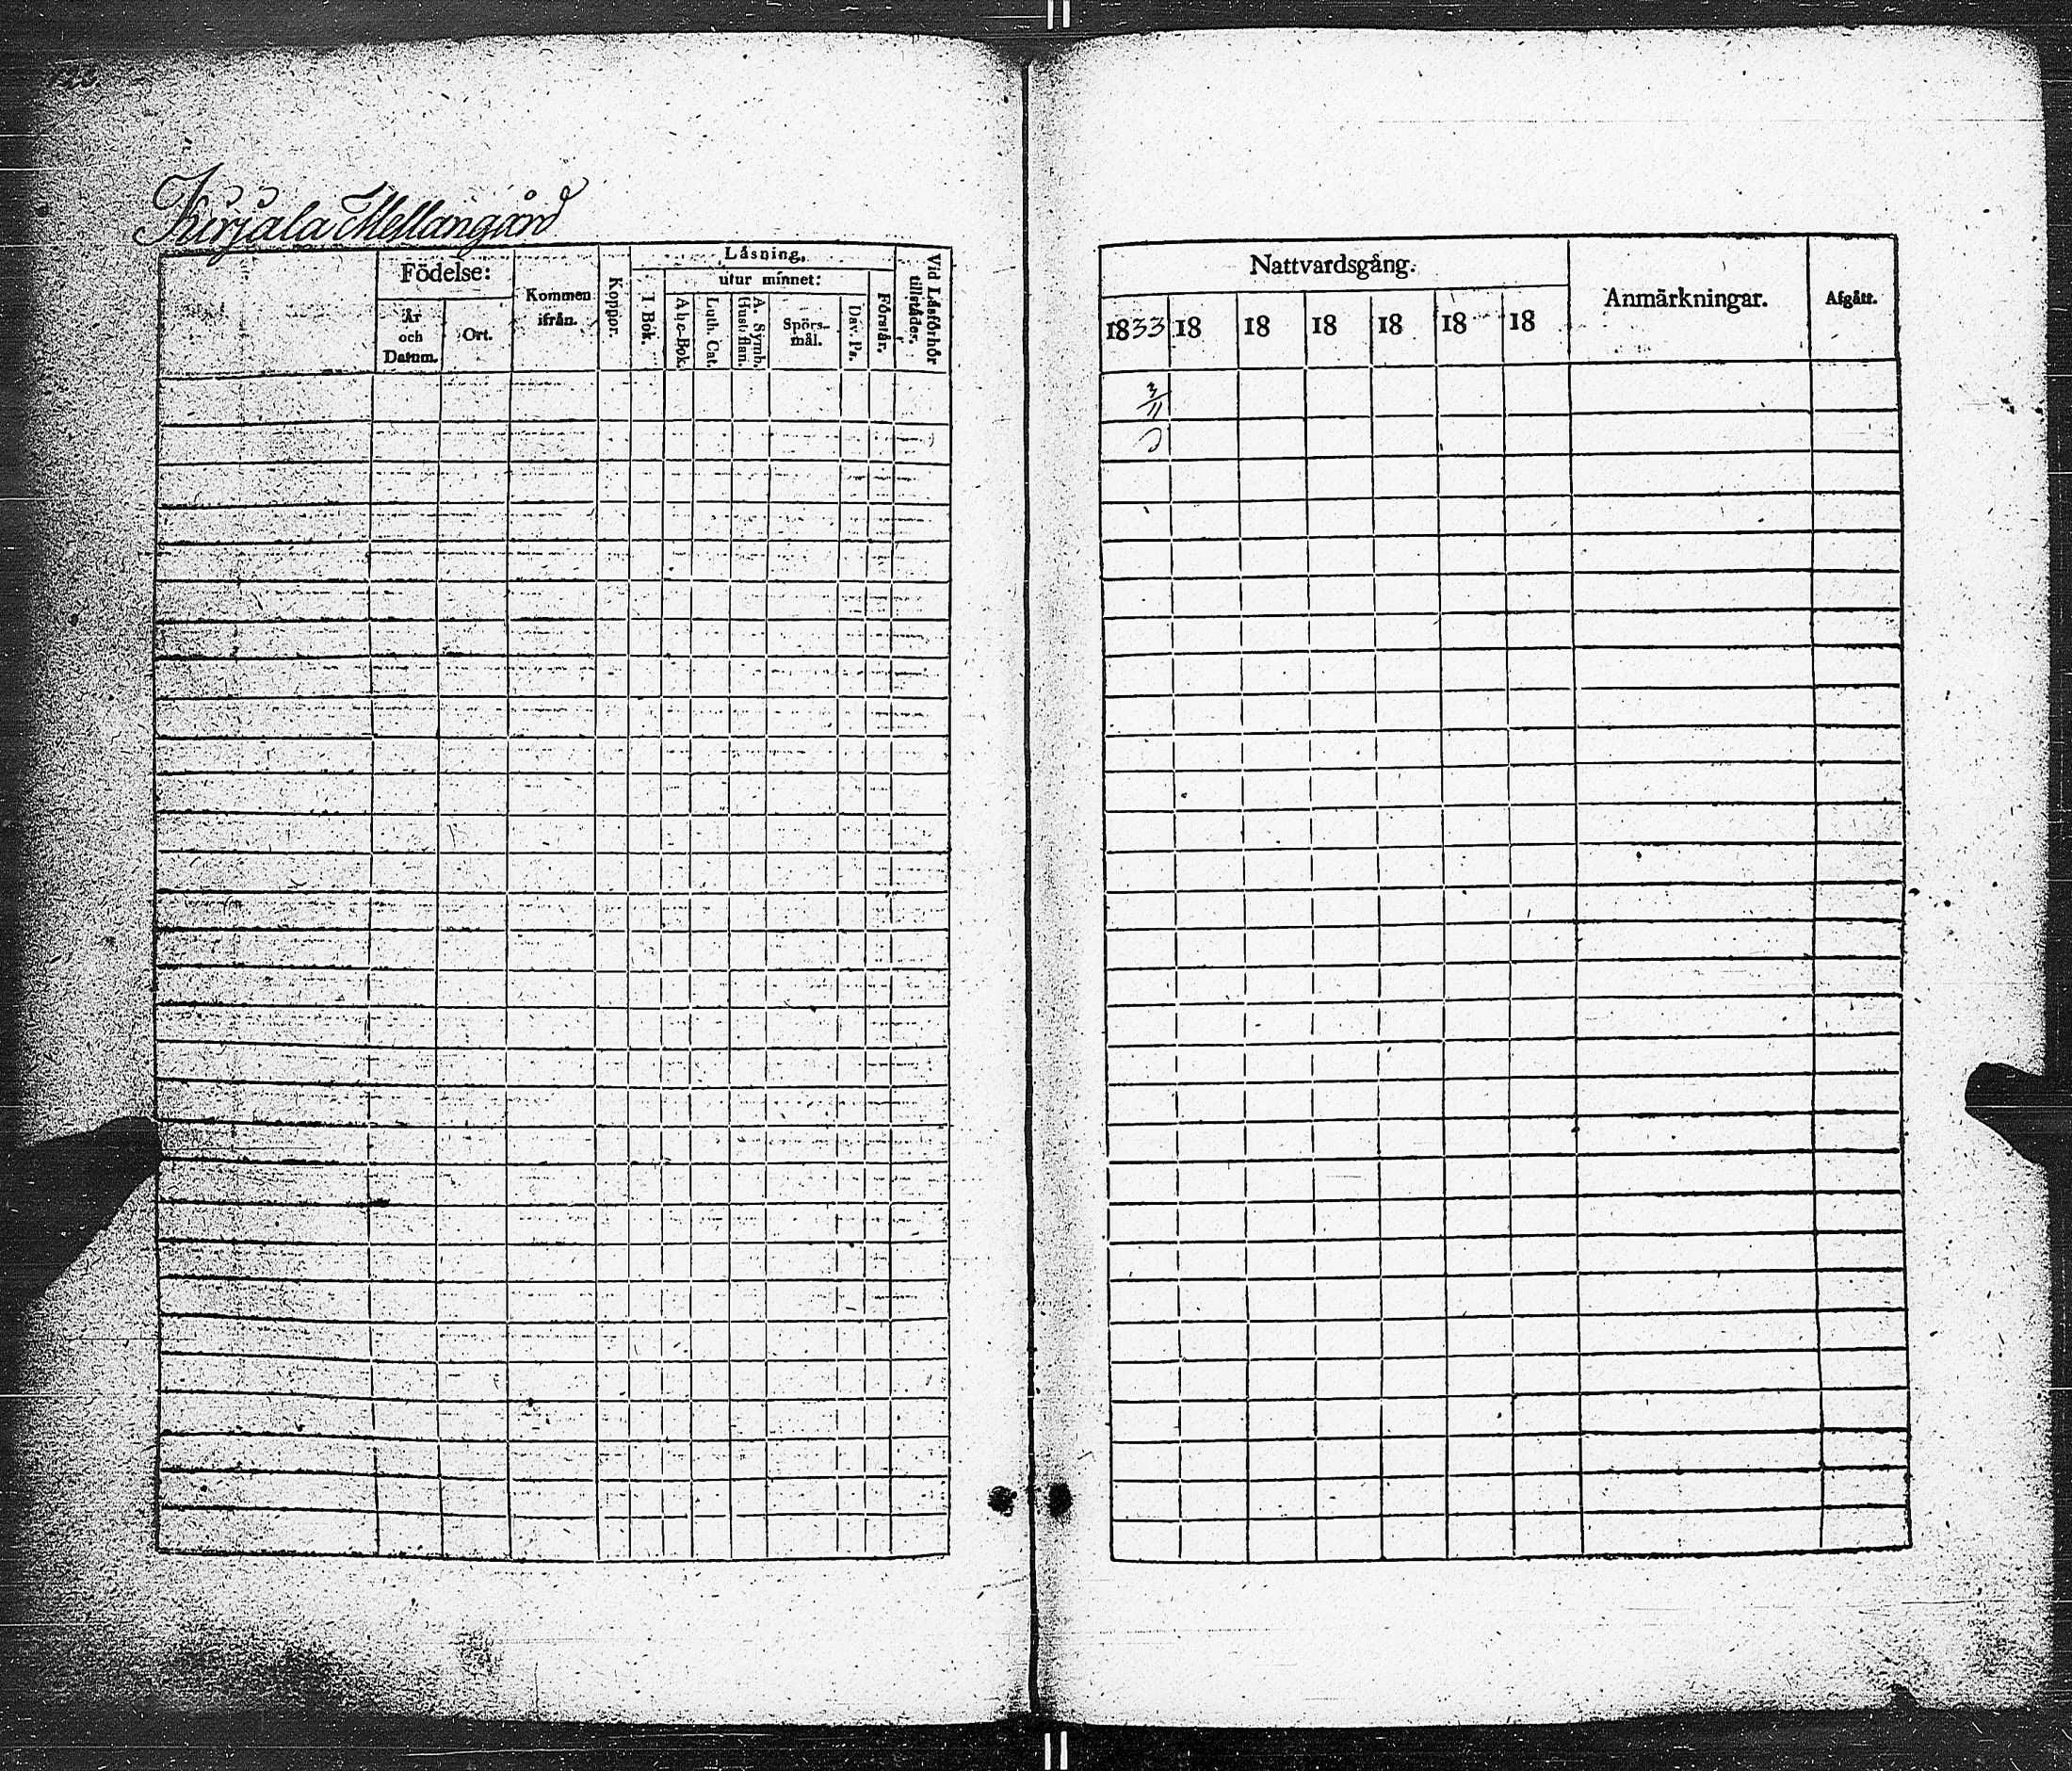 Kirjala Mellangård
Födelse:
År
och
Datum.
Ort.
Kommen
ifrån.
Koppor.
Läsning,
utur minnet:
I Bok.
Abc-Bok.
Luth. Cat.
A. Symb.
Hust. flan.
Spörs-
mål.
Dav. Ps.
Förstår.
Vid Läsförhör
tillstädes.
Nattvardsgång.
1833 18 18 18 18 18 18
Anmärkningar.
Afgått.
3/11